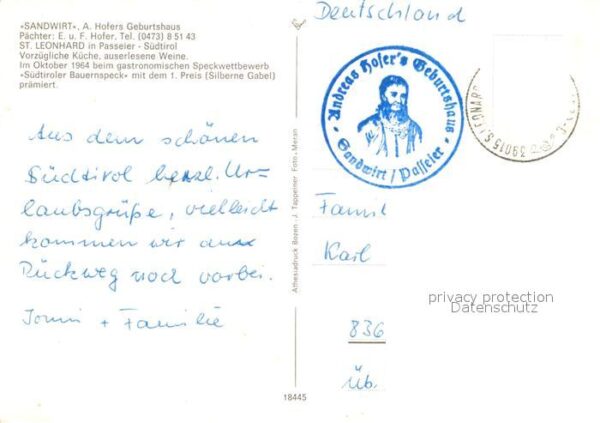 «SANDWIRT», A. Hofers Geburtshaus
Pächter: E. u. F. Hofer, Tel. (0473) 8 51 43
ST. LEONHARD in Passeier - Südtirol
Vorzügliche Küche, auserlesene Weine.
Im Oktober 1964 beim gastronomischen Speckwettbewerb
«Südtiroler Bauernspeck» mit dem 1. Preis (Silberne Gabel)
prämiert.
Aus dem schönen
Südtirol herzl. Ur-
laubsgrüße, vielleicht
kommen wir am
Rückweg noch vorbei.
+ Familie
Athesiadruck Bozen - J. Tappeiner Foto, Meran
18445
Deutschland
Andreas Hofer's Geburtshaus
Sandwirt / Passeier
39015 S. LEONARD
Famil
Karl
privacy protection
Datenschutz
836
Üb.